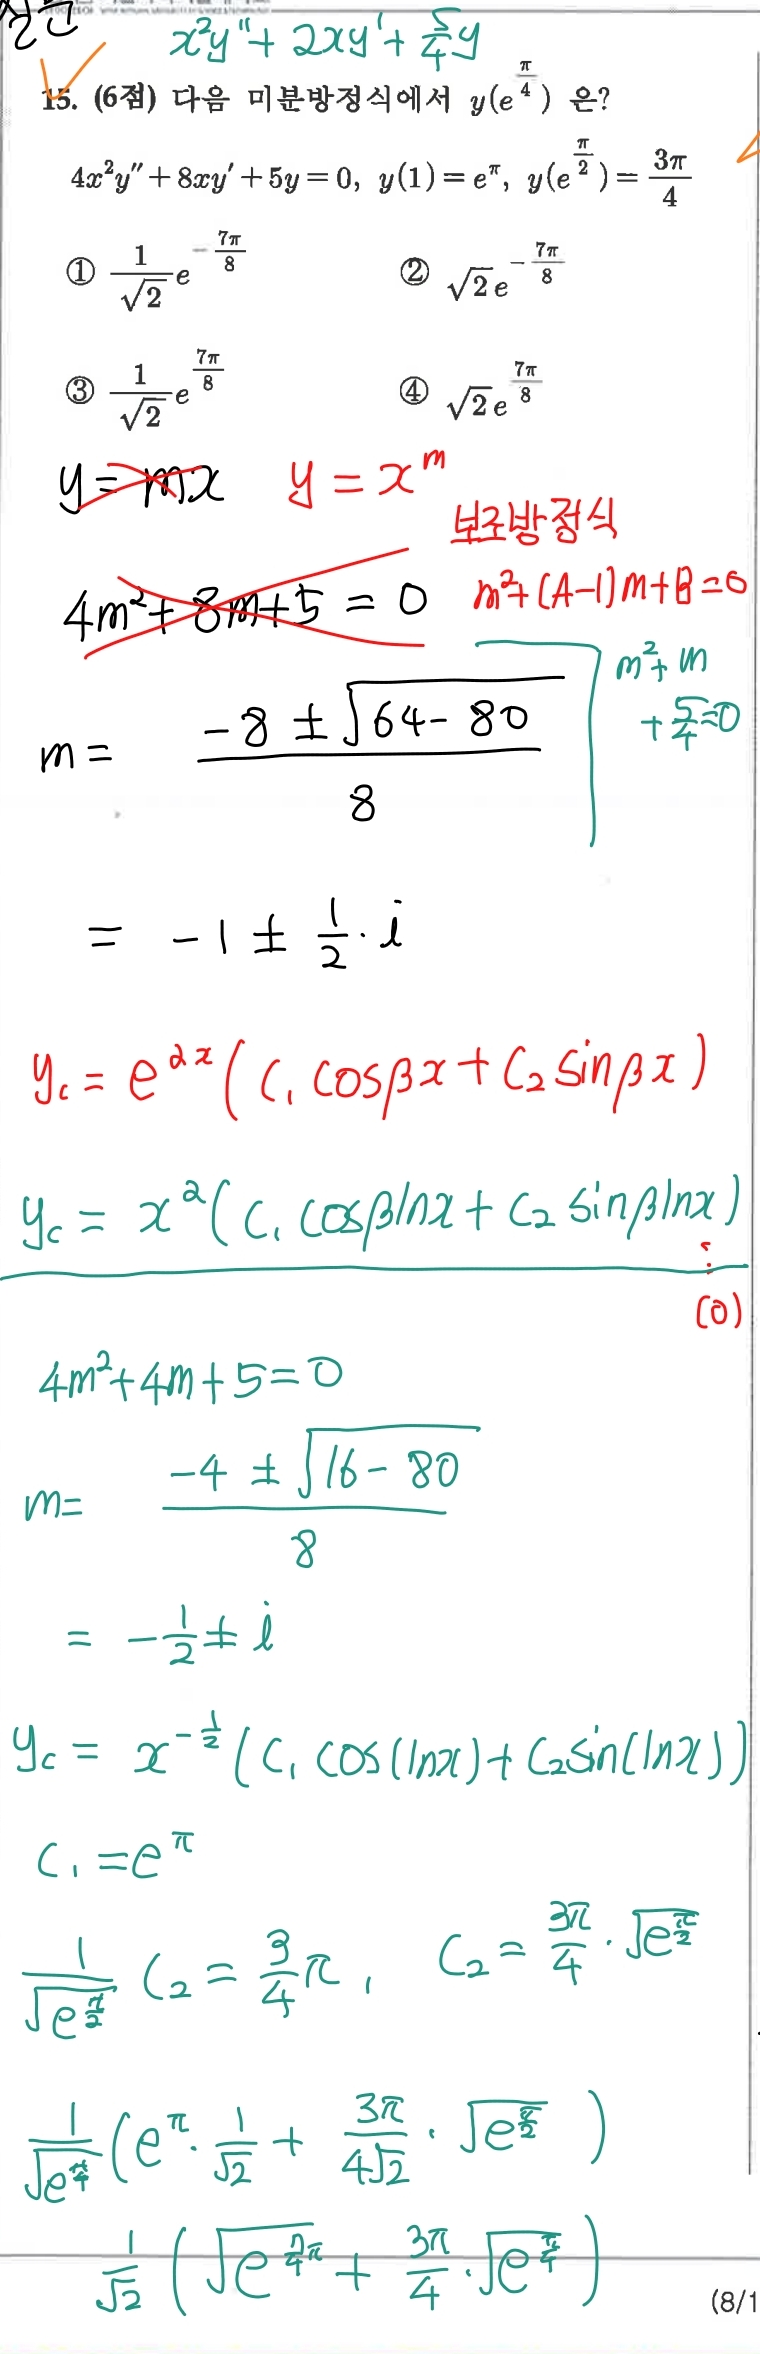 x²y″ + 2xy′ + 5/4 y
15. (6점) 다음 미분방정식에서 y(e^(π/4)) 은?
4x²y″ + 8xy′ + 5y = 0, y(1) = e^π, y(e^(π/2)) = 3π/4
① 1/√2 e^(-7π/8) ② √2 e^(-7π/8)
③ 1/√2 e^(7π/8) ④ √2 e^(7π/8)
y = mx y = x^m
보조방정식
4m² + 8m + 5 = 0 m² + (A-1)m + B = 0
m² + m
+ 5/4 = 0
m = (-8 ± √(64 - 80))/8
= -1 ± 1/2 · i
y_c = e^(αx) (C₁ cosβx + C₂ sinβx)
y_c = x^α (C₁ cosβlnx + C₂ sinβlnx)
(0)
4m² + 4m + 5 = 0
m = (-4 ± √(16 - 80))/8
= -1/2 ± i
y_c = x^(-1/2) (C₁ cos(lnx) + C₂ sin(lnx))
C₁ = e^π
1/√(e^(π/2)) C₂ = 3/4 π, C₂ = 3π/4 · √(e^(π/2))
1/√(e^(π/4)) (e^π · 1/√2 + 3π/(4√2) · √(e^(π/2)))
1/√2 (√(e^(7/4 π)) + 3π/4 · √(e^(π/4)))
(8/1